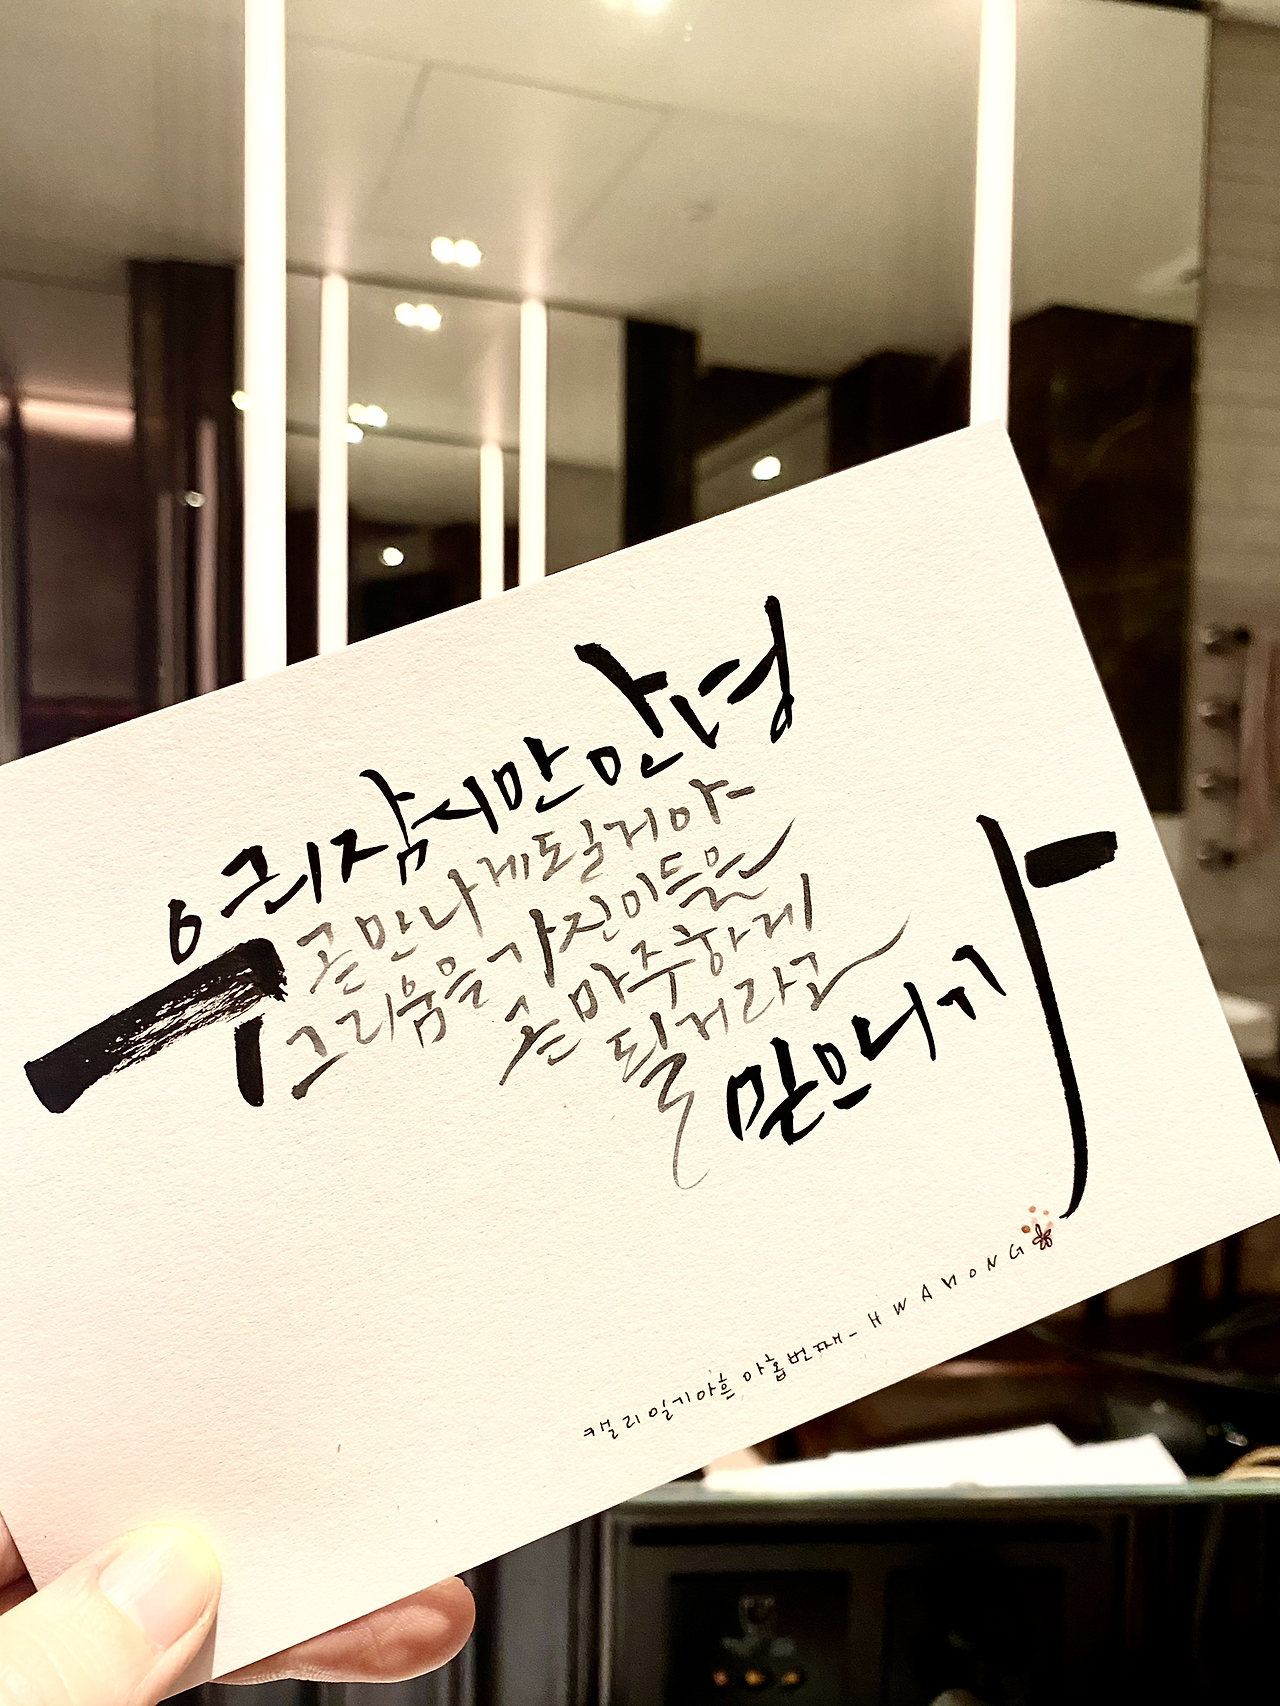 우리 잠시만 안녕
곧 만나게 될거야
그리움을 가진 이들은
곧 마주하게
될 거라고
믿으니까
캘리일기 아흔 아홉번째- HWAHONG